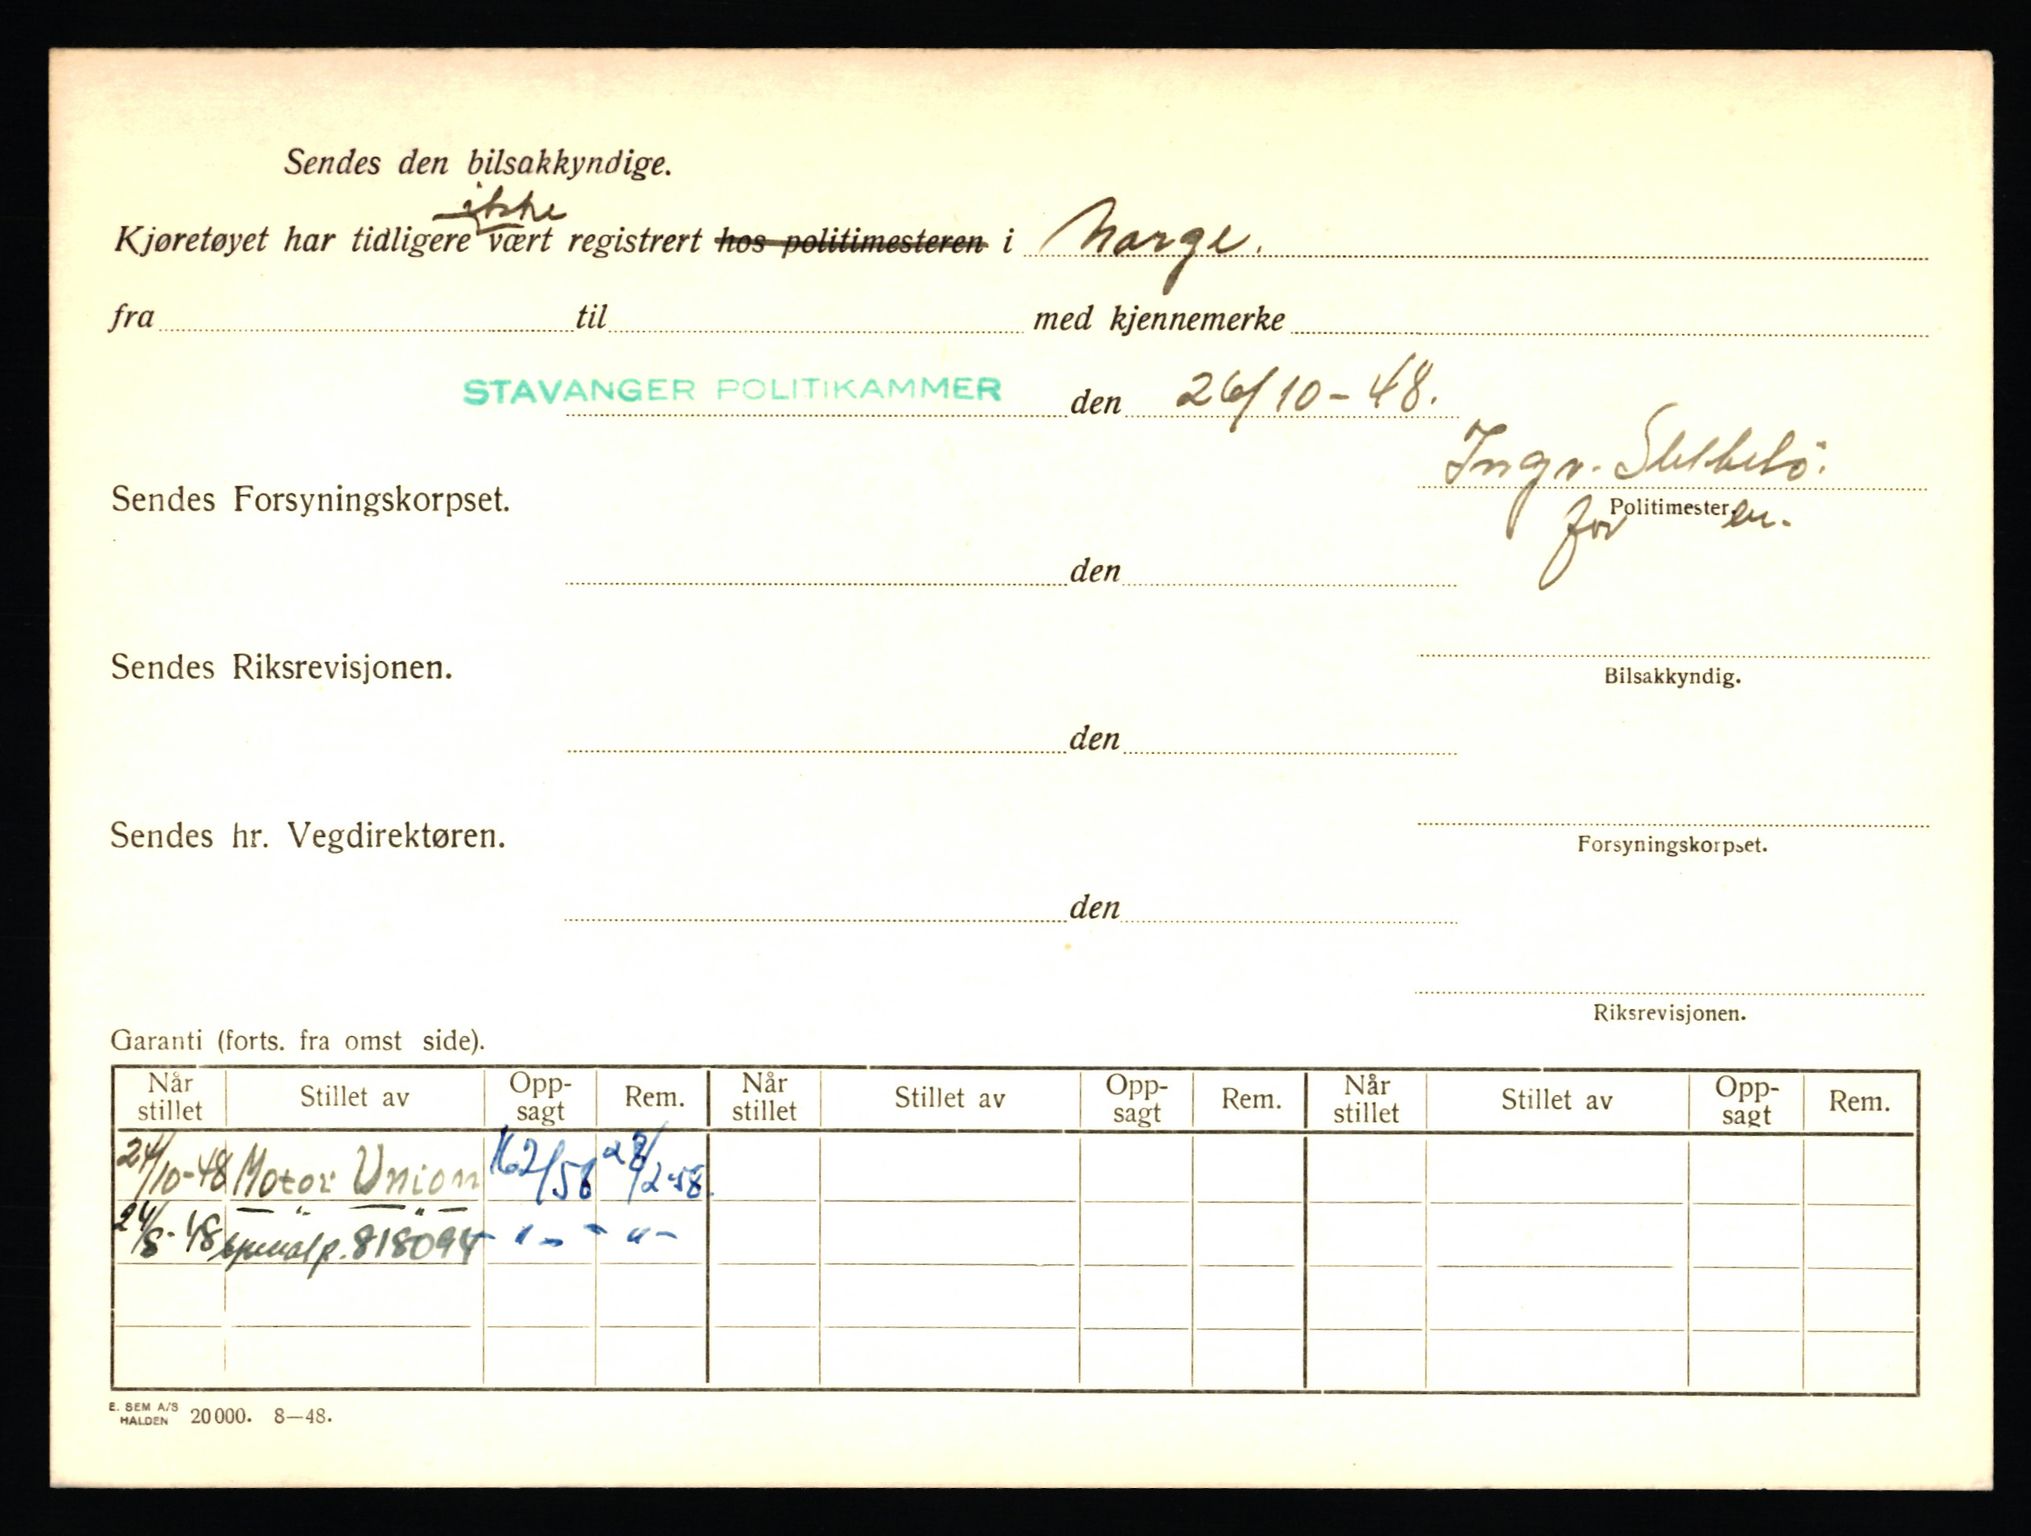 Sendes den bilsakkyndige.
ikke
Kjøretøyet har tidligere vært registrert hos politimesteren i Norge.
fra til med kjennemerke
STAVANGER POLITIKAMMER den 26/10-48.
Ingv.
Sendes Forsyningskorpset.
for Politimesteren.
den
Sendes Riksrevisjonen.
Bilsakkyndig.
den
Sendes hr. Vegdirektøren.
Forsyningskorpset.
den
Riksrevisjonen.
Garanti (forts. fra omst side).
Når stillet Stillet av Opp-sagt Rem. Når stillet Stillet av Opp-sagt Rem. Når stillet Stillet av Opp-sagt Rem.
24/10-48 Motor Union 28/2-58.
24/8-48 818094 - " - - " -
E. SEM A/S
HALDEN 20000. 8—48.